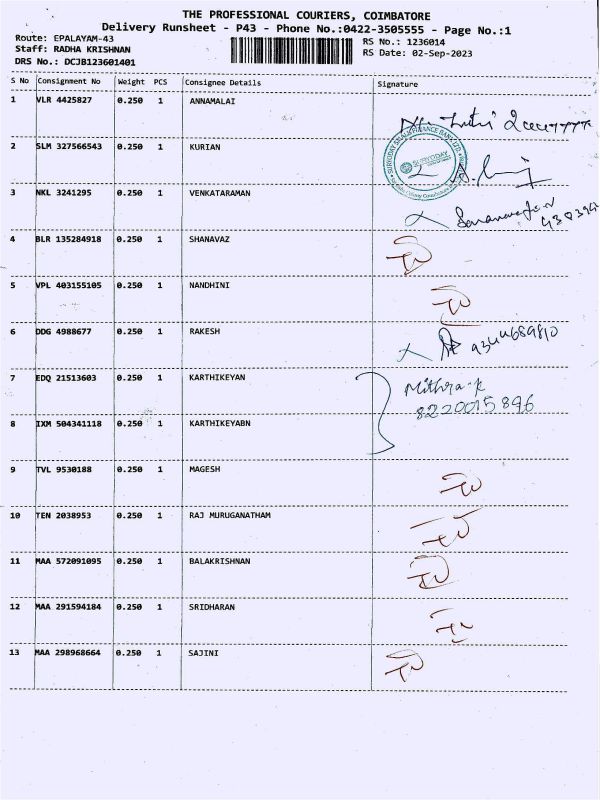 THE PROFESSIONAL COURIERS, COIMBATORE
Delivery Runsheet - P43 - Phone No.:0422-3505555 - Page No.:1
Route: EPALAYAM-43 RS No.: 1236014
Staff: RADHA KRISHNAN RS Date: 02-Sep-2023
DRS No.: DCJB123601401
S No Consignment No Weight PCS Consignee Details Signature
1 VLR 4425827 0.250 1 ANNAMALAI
2 SLM 327566543 0.250 1 KURIAN
SURYODAY
3 NKL 3241295 0.250 1 VENKATARAMAN
4 BLR 135284918 0.250 1 SHANAVAZ
5 VPL 403155105 0.250 1 NANDHINI
6 DDG 4988677 0.250 1 RAKESH
9344689810
7 EDQ 21513603 0.250 1 KARTHIKEYAN
Mithra-k
8220015896
8 IXM 504341118 0.250 1 KARTHIKEYABN
9 TVL 9530188 0.250 1 MAGESH
10 TEN 2038953 0.250 1 RAJ MURUGANATHAM
11 MAA 572091095 0.250 1 BALAKRISHNAN
12 MAA 291594184 0.250 1 SRIDHARAN
13 MAA 298968664 0.250 1 SAJINI